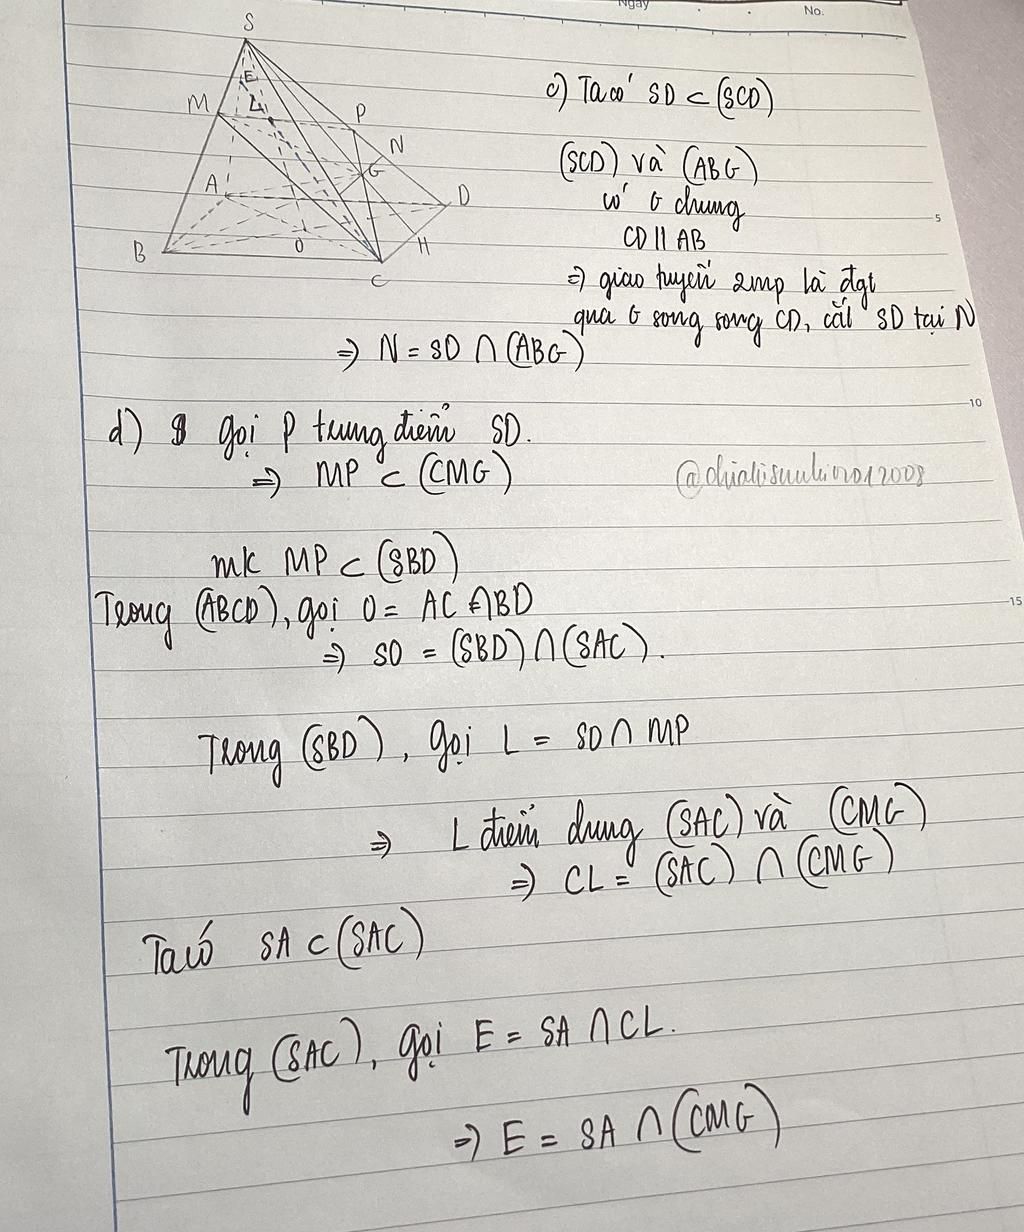 Ngày
No.
S
E
M
L
P
N
A
G
D
B
O
H
C
c) Ta có SD ⊂ (SCD)
(SCD) và (ABG)
có G chung
CD || AB
⇒ giao tuyến 2mp là đgt
qua G song song CD, cắt SD tại N
⇒ N = SD ∩ (ABG)
5
10
15
d) gọi P trung điểm SD.
⇒ MP ⊂ (CMG)
mk MP ⊂ (SBD)
Trong (ABCD), gọi O = AC ∩ BD
⇒ SO = (SBD) ∩ (SAC).
Trong (SBD), gọi L = SO ∩ MP
⇒ L điểm chung (SAC) và (CMG)
⇒ CL = (SAC) ∩ (CMG)
Ta có SA ⊂ (SAC)
Trong (SAC), gọi E = SA ∩ CL.
⇒ E = SA ∩ (CMG)